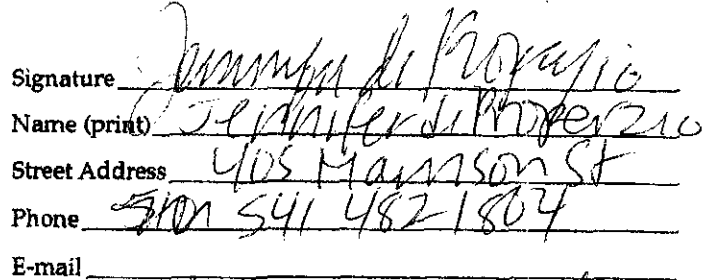 Signature Jennifer di Properzio
Name (print) Jennifer di Properzio
Street Address 405 St
Phone 541 482 1804
E-mail